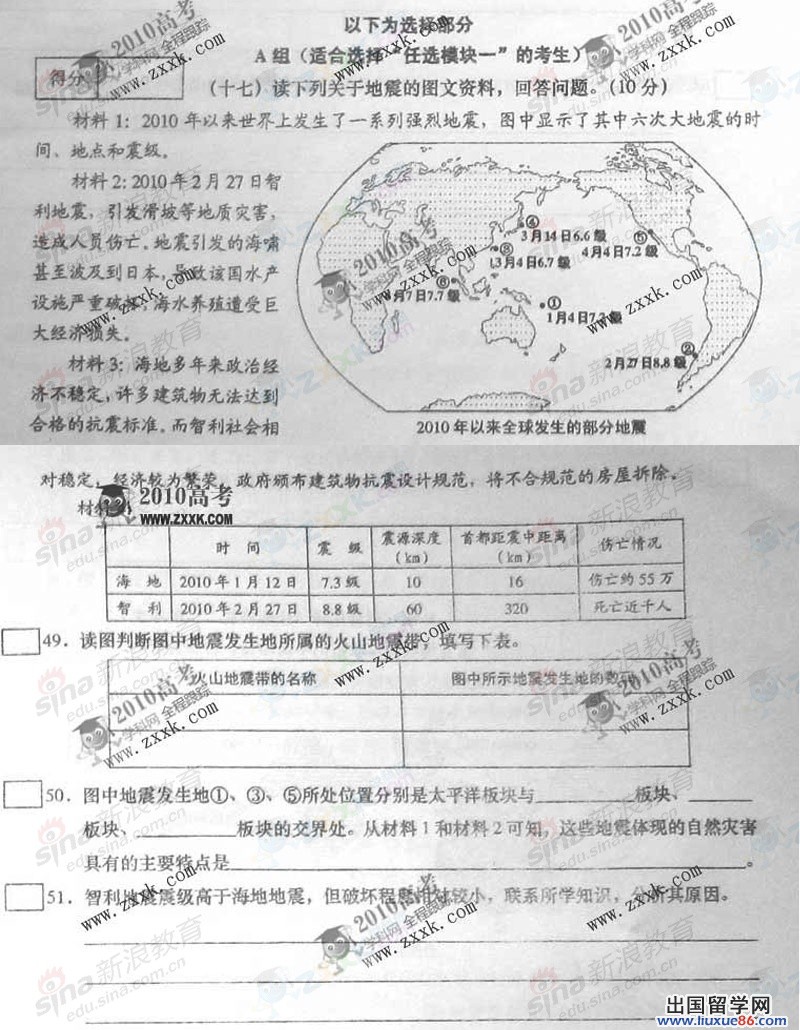 以下为选择部分
A组(适合选择“任选模块一”的考生)
得分
(十七)读下列关于地震的图文资料,回答问题。(10分)
材料1:2010年以来世界上发生了一系列强烈地震,图中显示了其中六次大地震的时
间、地点和震级。
材料2:2010年2月27日智
利地震,引发滑坡等地质灾害,
造成人员伤亡。地震引发的海啸
甚至波及到日本,导致该国水产
设施严重破坏,海水养殖遭受巨
大经济损失。
材料3:海地多年来政治经
济不稳定,许多建筑物无法达到
合格的抗震标准。而智利社会相
④
3月14日6.6级
⑤
4月4日7.2级
③
3月4日6.7级
⑥
月7日7.7级
①
1月4日7.2级
②
2月27日8.8级
2010年以来全球发生的部分地震
对稳定,经济较为繁荣,政府颁布建筑物抗震设计规范,将不合规范的房屋拆除。
时 间 震 级 震源深度(km) 首都距震中距离(km) 伤亡情况
海 地 2010年1月12日 7.3级 10 16 伤亡约55万
智 利 2010年2月27日 8.8级 60 320 死亡近千人
49.读图判断图中地震发生地所属的火山地震带,填写下表。
火山地震带的名称 图中所示地震发生地的数码
50.图中地震发生地①、③、⑤所处位置分别是太平洋板块与________板块、________
板块、________板块的交界处。从材料1和材料2可知,这些地震体现的自然灾害
具有的主要特点是________。
51.智利地震震级高于海地地震,但破坏程度相对较小,联系所学知识,分析其原因。
2010高考
学科网 全程跟踪
www.zxxk.com
2010高考
WWW.ZXXK.COM
sina新浪教育
edu.sina.com.cn
出国留学网
www.liuxue86.com